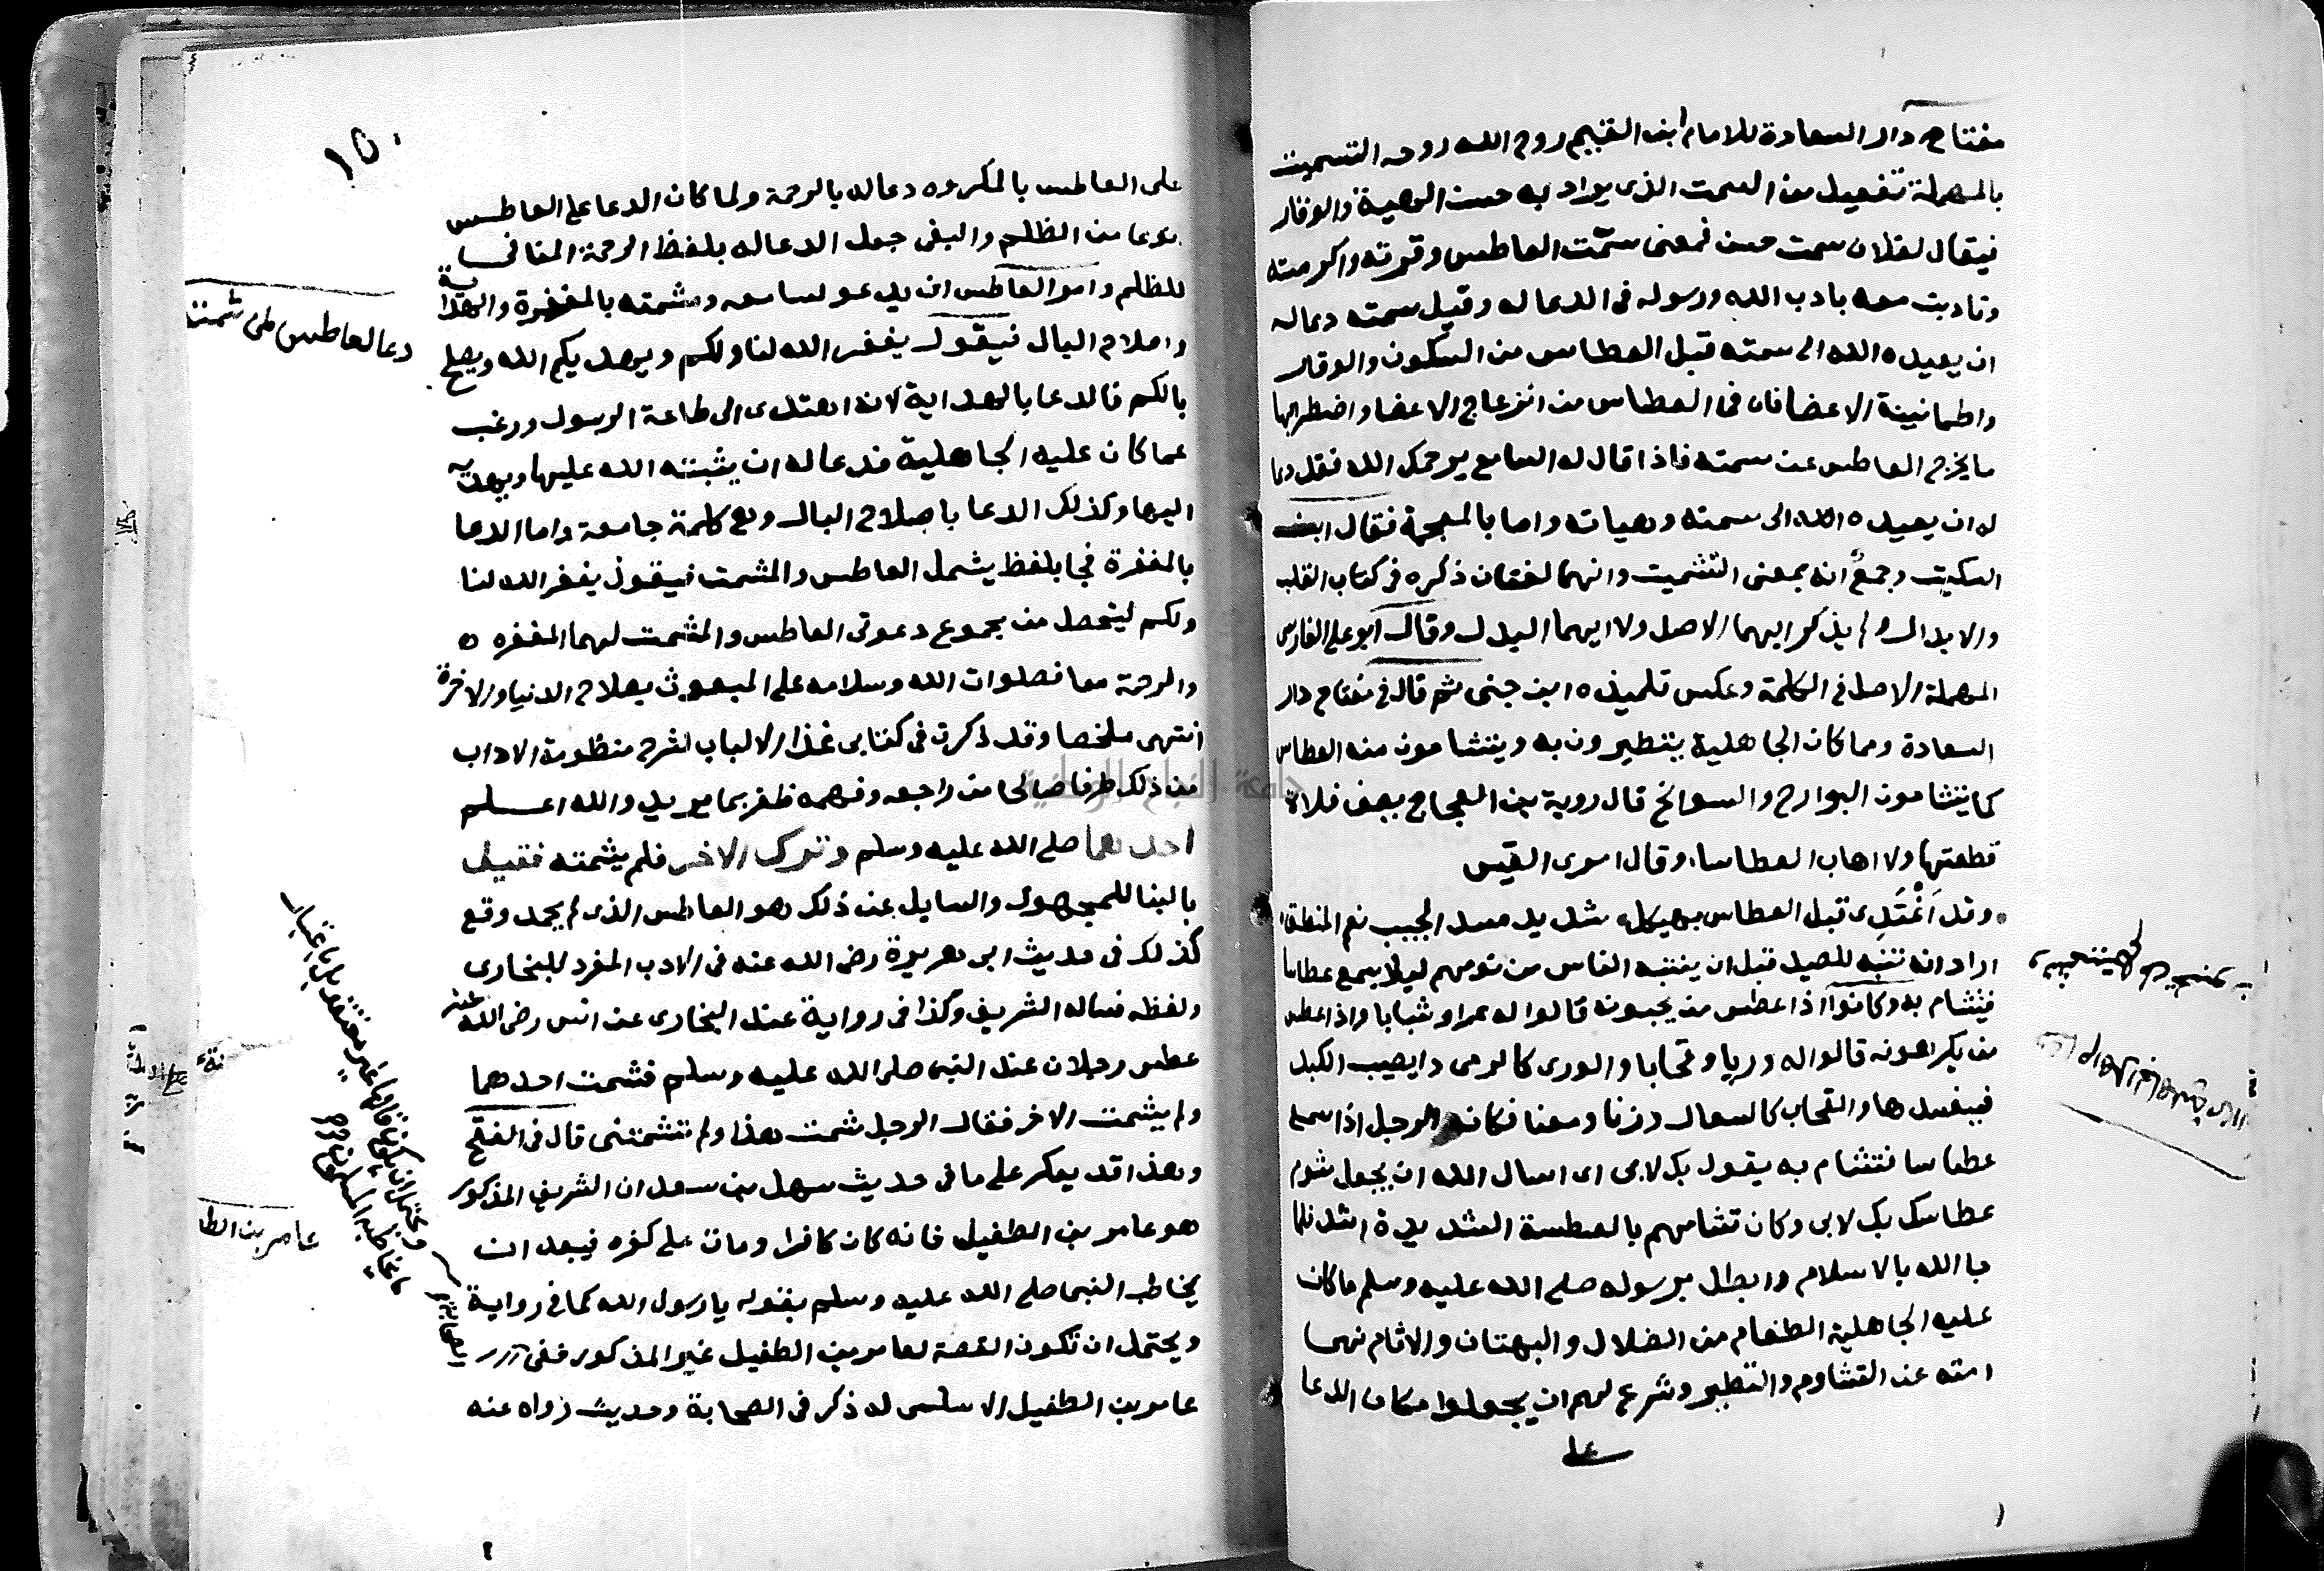 مفتاح دار السعادة للامام ابن القيم روح الله روحه التسميت
بالمهملة تفعيل من السمت الذي يراد به حسن الهيية والوقار
فيقال لفلان سمت حسن فمعنى سمّت العاطس وقرته واكرمته
وتادبت معه بادب الله ورسوله في الدعا له وقيل سمته دعاله
ان يعيده الله الى سمته قبل العطاس من السكون والوقار
واطمانينة الاعضا فان في العطاس من انزعاج الاعضا واضطرابها
ما يخرج العاطس عن سمته فاذا قال له السامع يرحمك الله فقد دعا
له ان يعيده الله الى سمته وهياته واما بالمعجمة فقال ابن
السكيت وجمع انه بمعنى التشميت وانهما لغتان ذكره في كتاب القلب
والابدال ولم يذكر ايهما الاصل ولا ايهما البدل وقال ابو علي الفارسي
المهملة الاصل في الكلمة وعكس تلميذه ابن جني ثم قال في مفتاح دار
السعادة ومما كان الجاهلية يتطيرون به ويتشامون منه العطاس
كما يتشامون البوارح والسوانح قال روبة بن العجاج يصف فلاة
قطعتها ولا اهاب العطاسا، وقال امرئ القيس
وقد اَغْتَدِي قبل العطاس بهيكل، شديد مسد الجيب نعم المنطق
اراد انه تنبه للصيد قبل ان ينتبه الناس من نومهم ليلا يسمع عطاسا
فيتشام به وكانوا اذا عطس من يحبونه قالوا له عمرا وشبابا واذا عطس
من يكرهونه قالوا له وريا وقحابا والورى كالرمى دا يصيب الكبد
فيفسدها والقحاب كالسعال وزنا ومعنا فكان الرجل اذا سمع
عطاسا فتشام به يقول بك لابي اى اسال الله ان يجعل شوم
عطاسك بك لابي وكان تشامهم بالعطسة الشديدة اشد فلما
جا الله بالاسلام وابطل برسوله صلى الله عليه وسلم ما كان
عليه الجاهلية الطغام من الضلال والبهتان والاثام نهى
امته عن التشاوم والتطير وشرع لهم ان يجعلوا مكان الدعا
على
١٥٠
على العاطس بالمكروه دعا له بالرحمة ولما كان الدعا على العاطس
نوعا من الظلم والبغى جعل الدعا له بلفظ الرحمة المنافية
للظلم وامر العاطس ان يدعو لسامعه ومشمته بالمغفرة والهداية
واصلاح البال فيقول يغفر الله لنا ولكم ويهديكم الله ويصلح
بالكم فالدعا بالهداية لانه اهتدى الى طاعة الرسول ورغب
عما كان عليه الجاهلية فدعا له ان يثبته الله عليها ويهديه
اليها وكذلك الدعا باصلاح البال وهي كلمة جامعة واما الدعا
بالمغفرة فجا بلفظ يشمل العاطس والمشمت فيقول يغفر الله لنا
ولكم ليتحصل من مجموع دعوتى العاطس والمشمت لهما المغفره
والرحمة معا فصلوات الله وسلامه على المبعوث بصلاح الدنيا والاخرة
انتهى ملخصا وقد ذكرت في كتابي غذا الالباب لشرح منظومة الاداب
من ذلك طرفا صالحا من راجعه وفهمه ظفر بما يريد والله اعلم
احدهما صلى الله عليه وسلم وترك الاخر فلم يشمته فقيل
بالبنا للمجهول والسايل عن ذلك هو العاطس الذي لم يحمد وقع
كذلك في حديث ابي هريرة رضى الله عنه في الادب المفرد للبخارى
ولفظه فساله الشريف وكذا في رواية عند البخارى عن انس رضى الله عنه
عطس رجلان عند النبى صلى الله عليه وسلم فشمت احدهما
ولم يشمت الاخر فقال الرجل شمت هذا ولم تشمتنى قال في الفتح
وهذا قد يعكر على ما في حديث سهل بن سعد ان الشريف المذكور
هو عامر بن الطفيل فانه كان كافرا ومات على كفره فيبعد ان
يخاطب النبى صلى الله عليه وسلم بقوله يا رسول الله كما في رواية
ويحتمل ان تكون القصة لعامر بن الطفيل غير المذكور ففي
عامر بن الطفيل الاسلمى له ذكر في الصحابة وحديث رواه عنه
دعا العاطس لمن شمته
ويحتمل ان يكون قالها غير معتقد بل باعتبار
ما يخاطبه المسلمون
عامر بن الطفيل
جامعة النجاح الوطنية